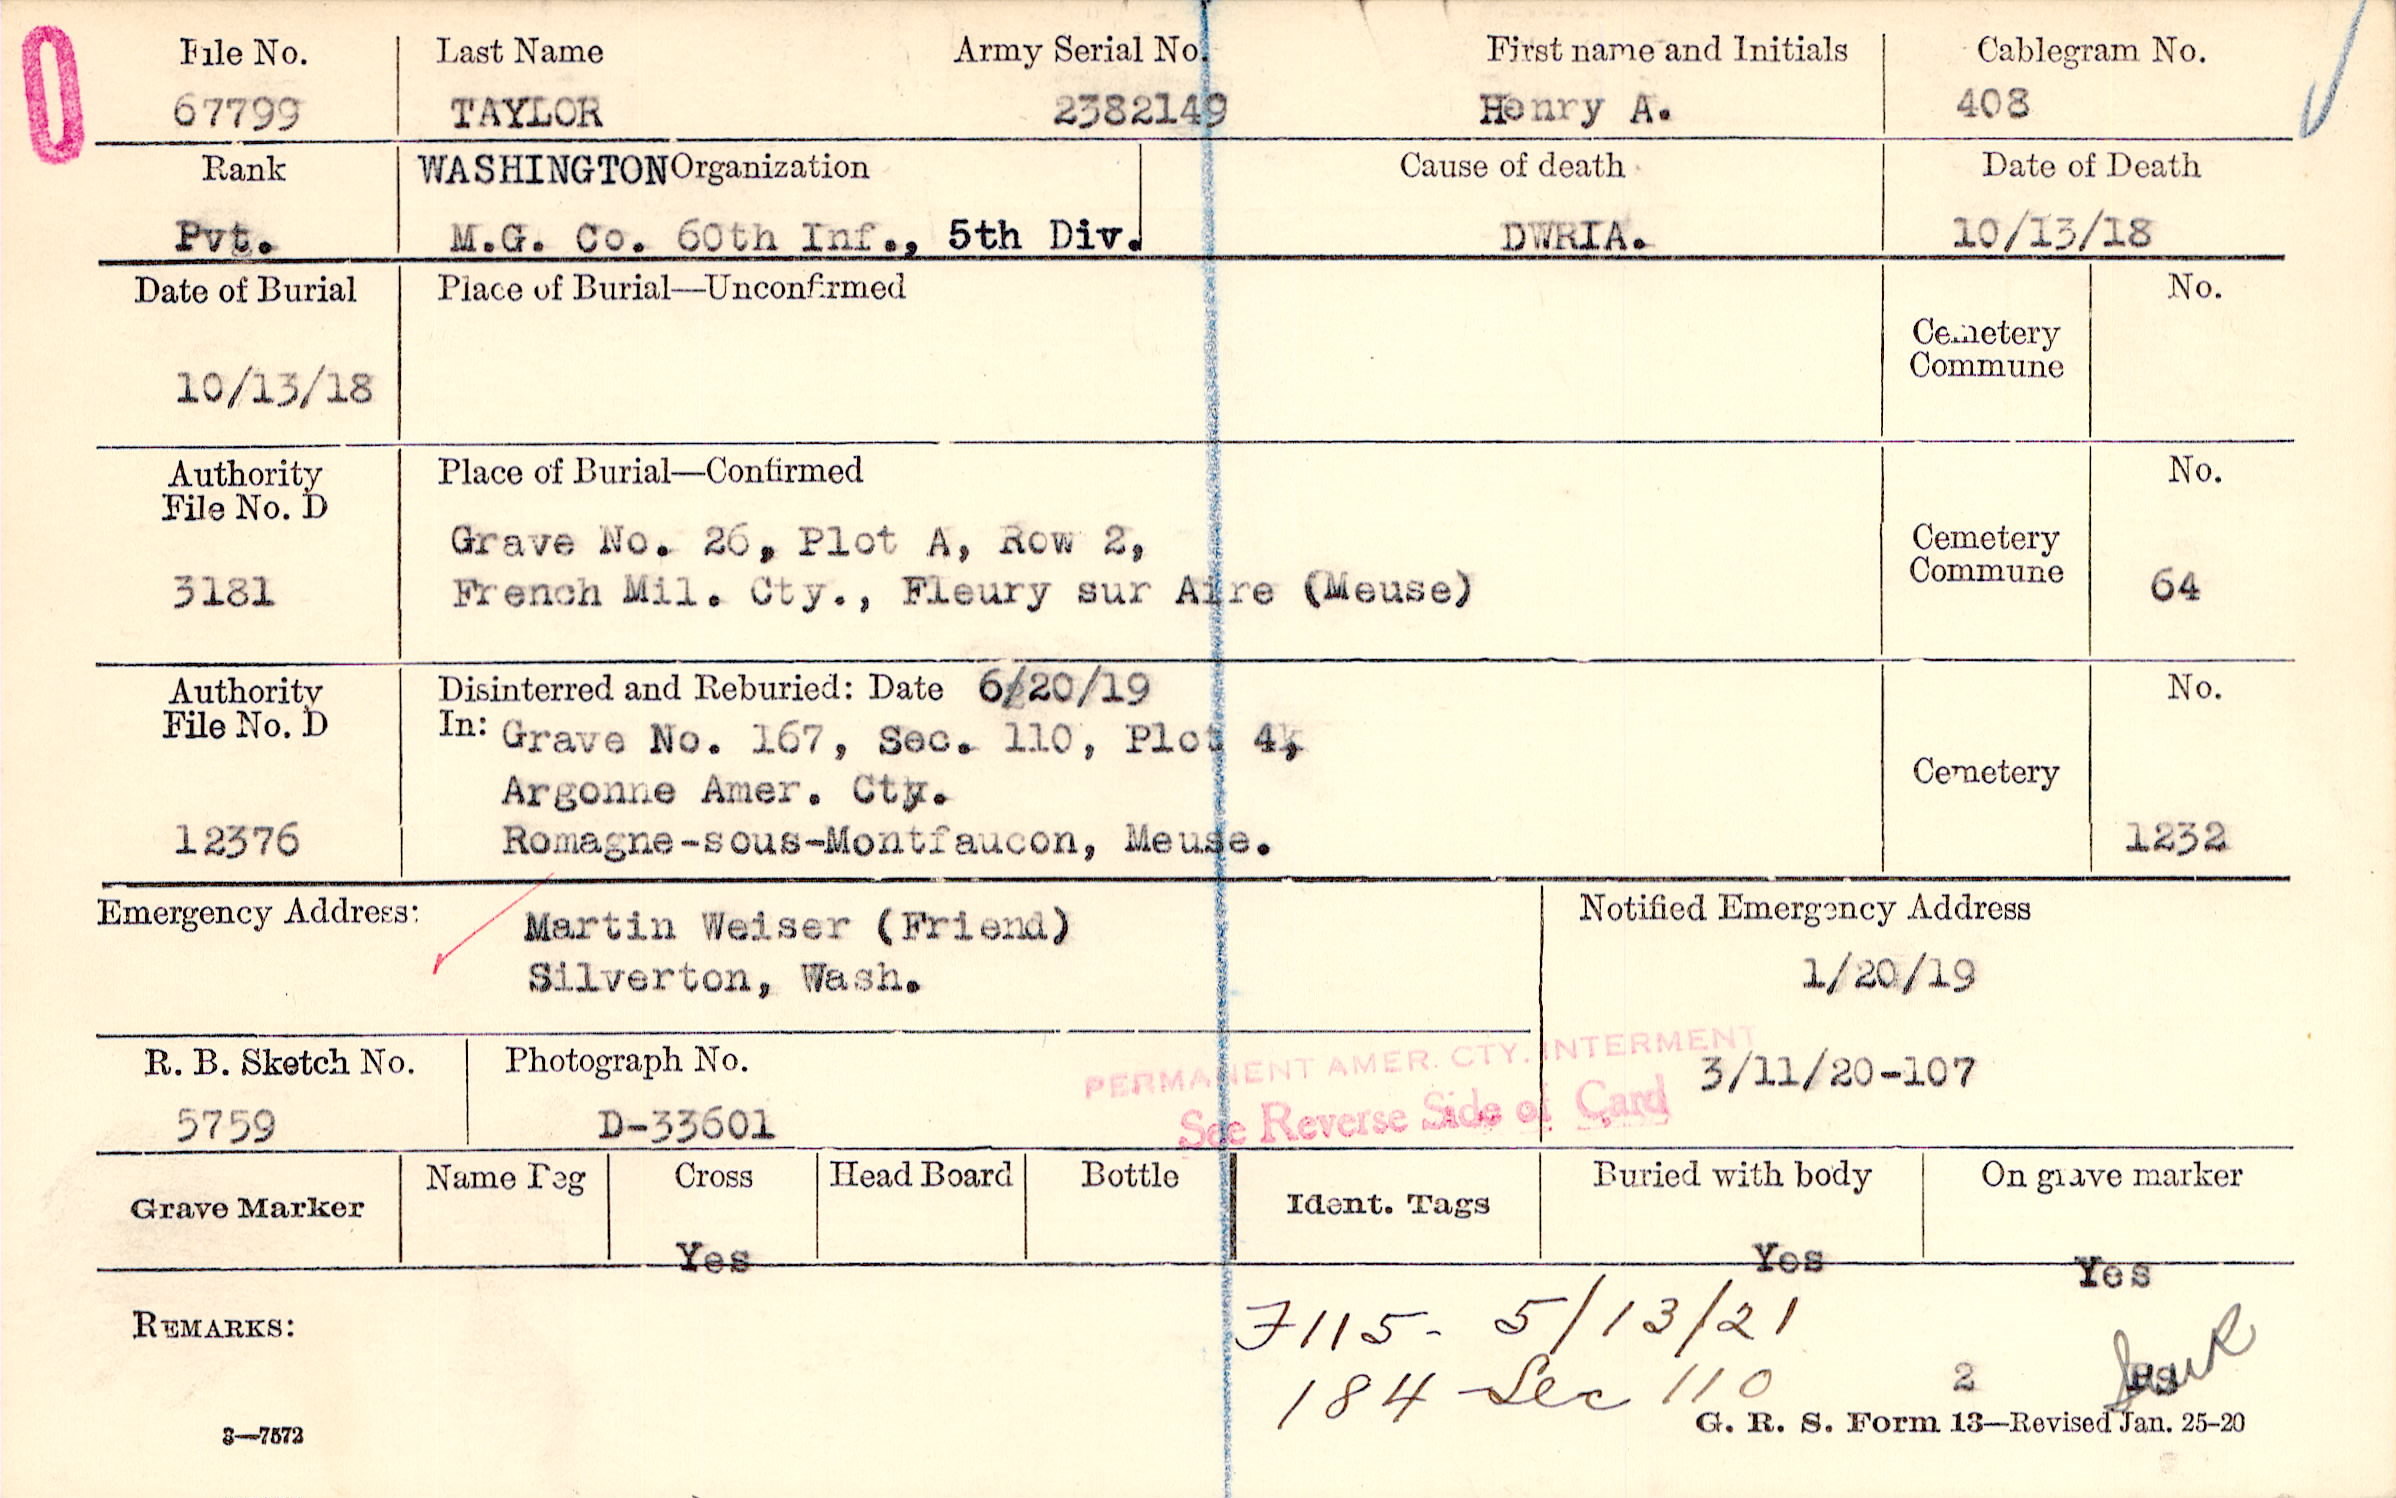 File No. Last Name Army Serial No. First name and Initials Cablegram No.
67799 TAYLOR 2382149 Henry A. 408
Rank WASHINGTON Organization Cause of death Date of Death
Pvt. M.G. Co. 60th Inf., 5th Div. DWRIA. 10/13/18
Date of Burial Place of Burial—Unconfirmed No.
Cemetery
Commune
10/13/18
Authority Place of Burial—Confirmed No.
File No. D
Grave No. 26, Plot A, Row 2, Cemetery
3181 French Mil. Cty., Fleury sur Aire (Meuse) Commune 64
Authority Disinterred and Reburied: Date 6/20/19 No.
File No. D In: Grave No. 167, Sec. 110, Plot 4,
Argonne Amer. Cty. Cemetery
12376 Romagne-sous-Montfaucon, Meuse. 1232
Emergency Address: Martin Weiser (Friend) Notified Emergency Address
Silverton, Wash. 1/20/19
R. B. Sketch No. Photograph No. PERMANENT AMER. CTY. INTERMENT 3/11/20-107
5759 D-33601 See Reverse Side of Card
Grave Marker Name Peg Cross Head Board Bottle Ident. Tags Buried with body On grave marker
Yes Yes Yes
REMARKS: F115- 5/13/21
184 Sec 110 2
3—7572 G. R. S. Form 13—Revised Jan. 25-20